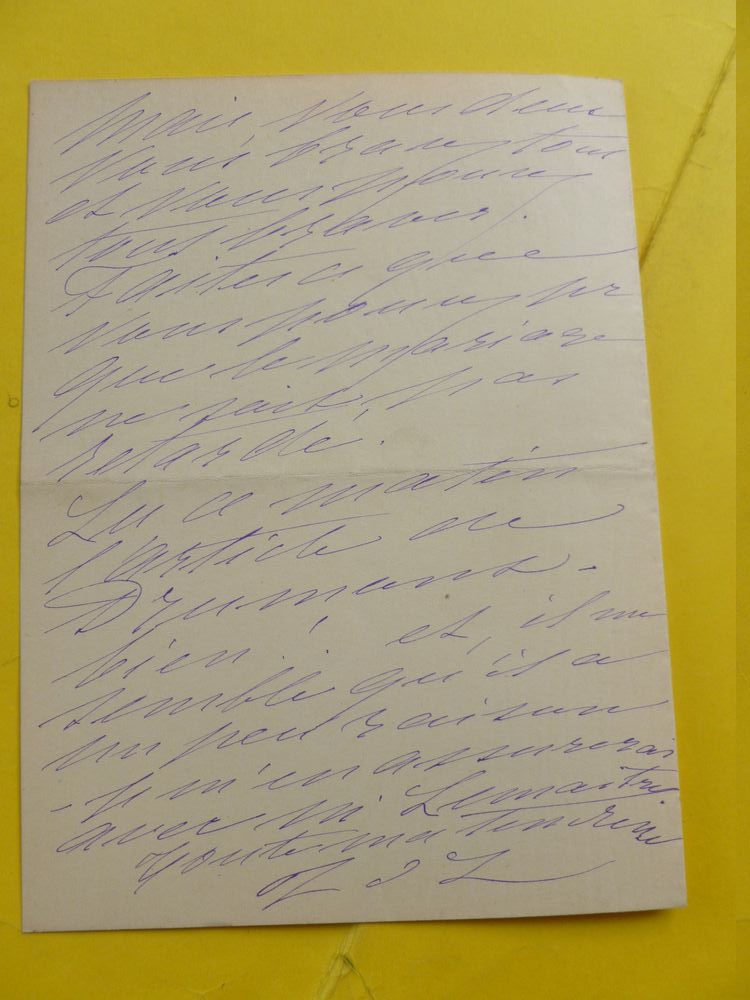 Mais vous deux
vous bravez tout
et vous pouvez
tout braver.
Faites ce que
vous pouvez pr
que le mariage
ne soit pas
retardé.
Lu ce matin
l'article de
Drumont -
bien ! et, il me
semble qu'il a
un peu raison
- je m'en assurerai
avec M. Lemaitre
Toute ma tendresse